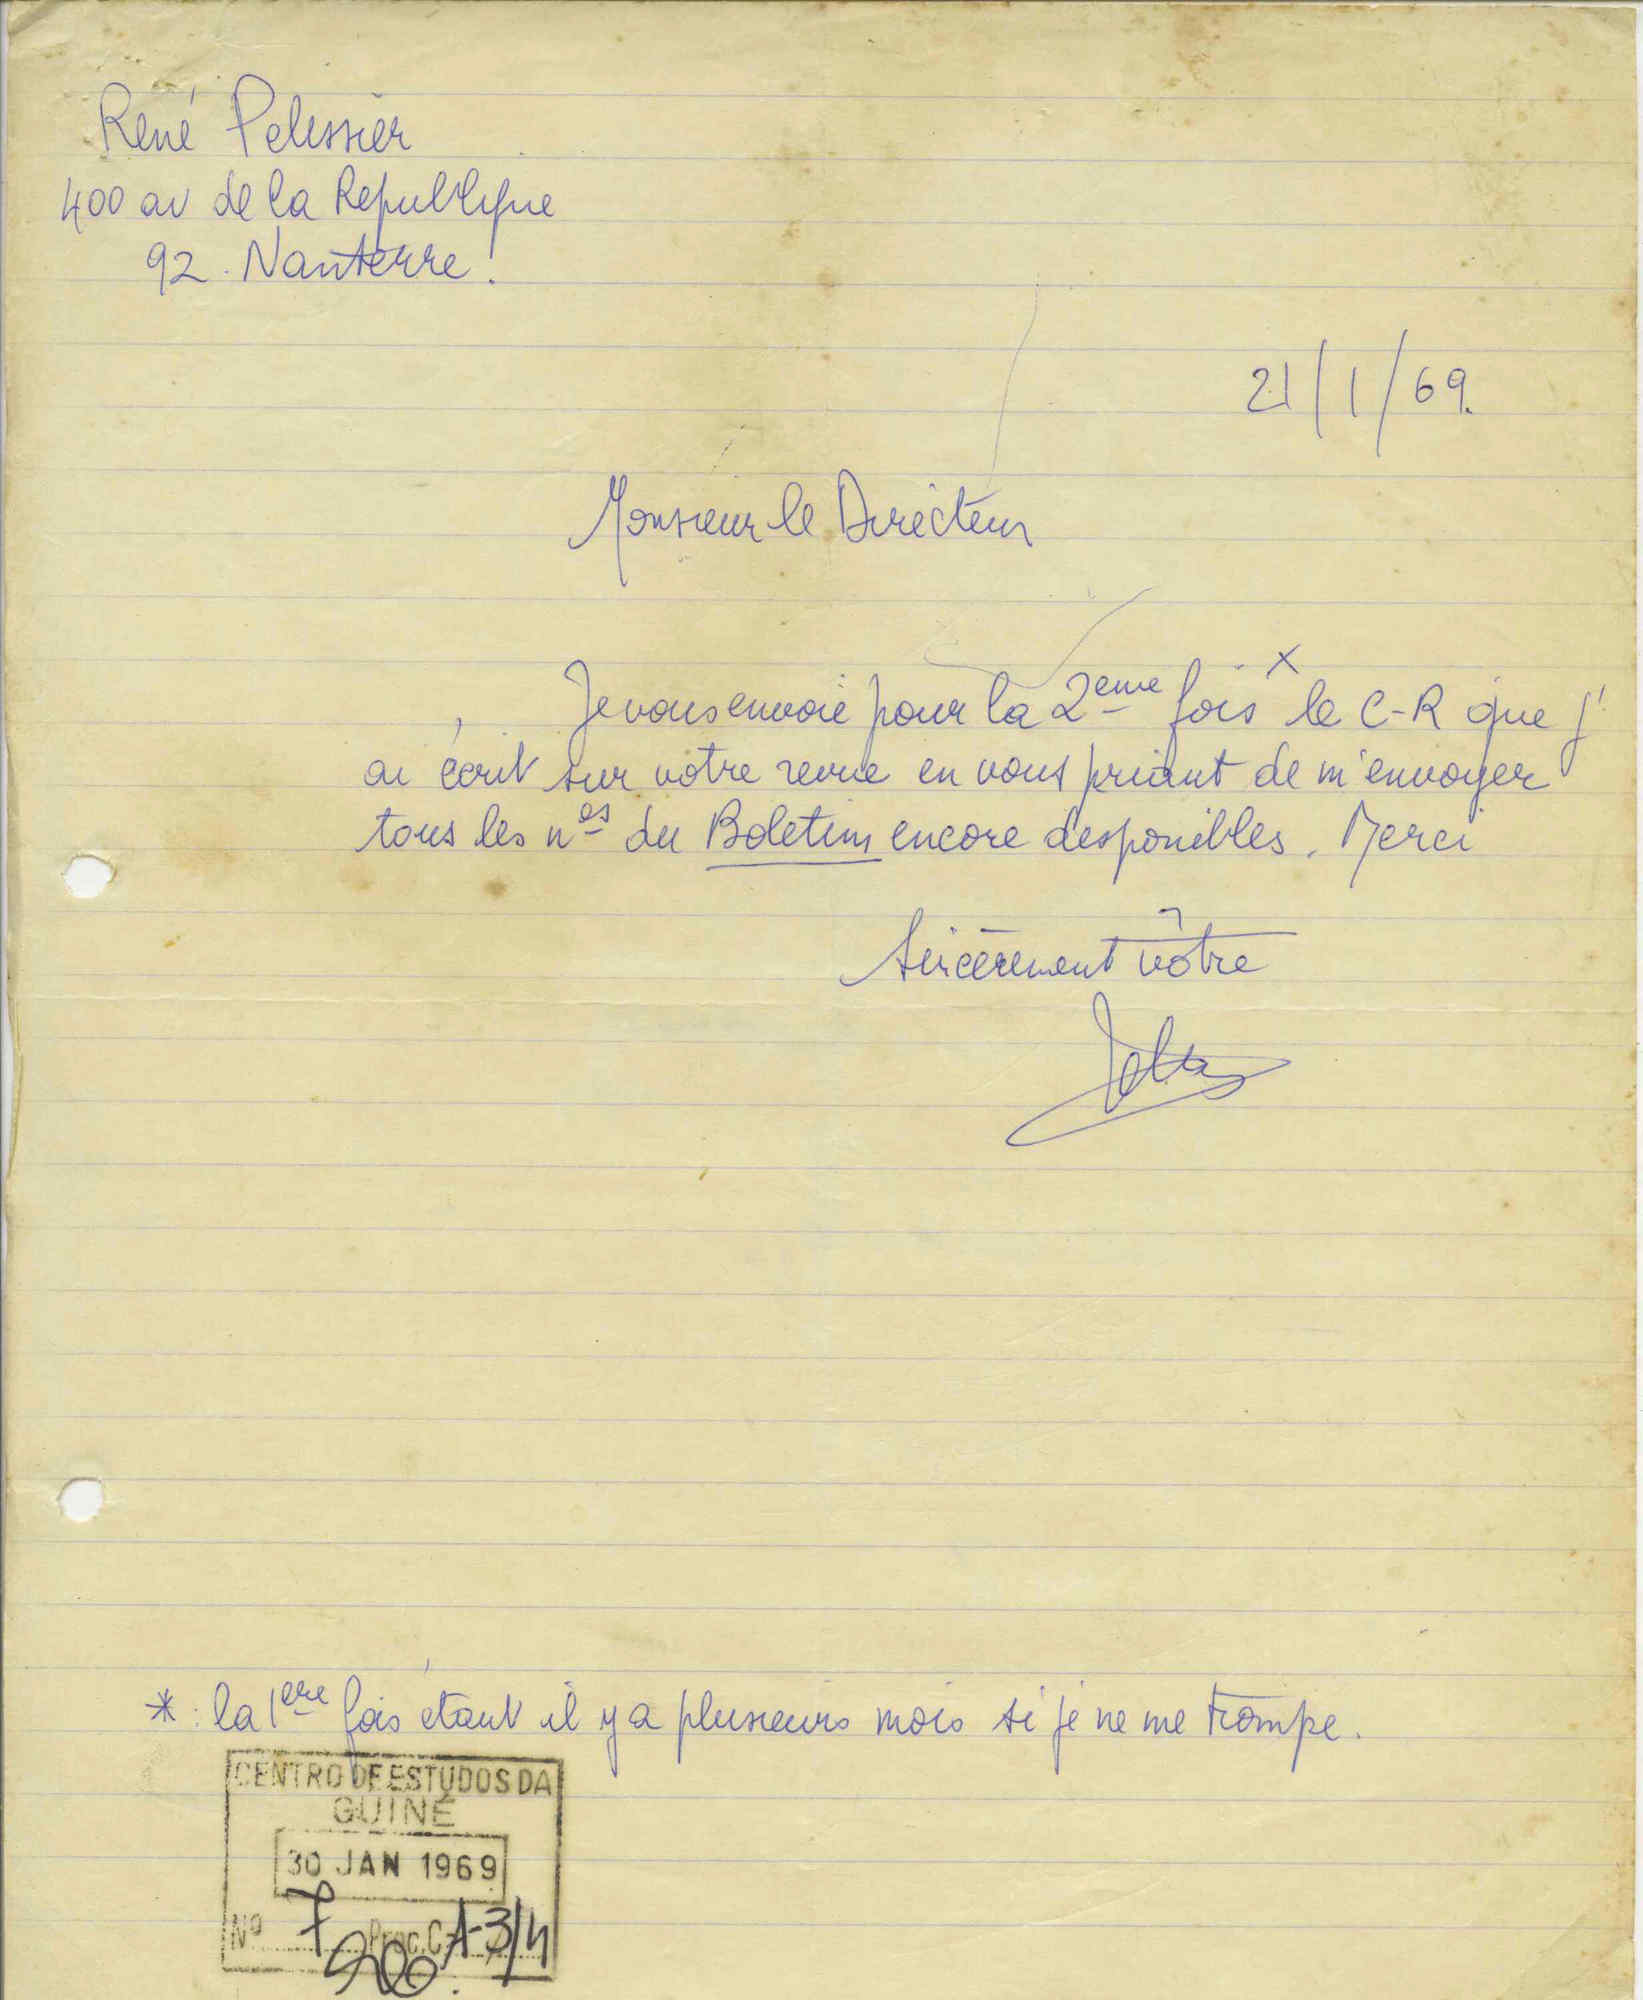 René Pelissier
400 av de la Republique
92. Nanterre.
21/1/69.
Monsieur le Directeur
Je vous envoie pour la 2eme fois x le C-R que j'
ai écrit sur votre revue en vous priant de m'envoyer
tous les nos du Boletim encore disponibles. Merci
Sincèrement vôtre
* : la 1ere fois étant il y a plusieurs mois si je ne me trompe.
CENTRO DE ESTUDOS DA
GUINÉ
30 JAN 1969
Nº 7 Proc. C-A-3/4